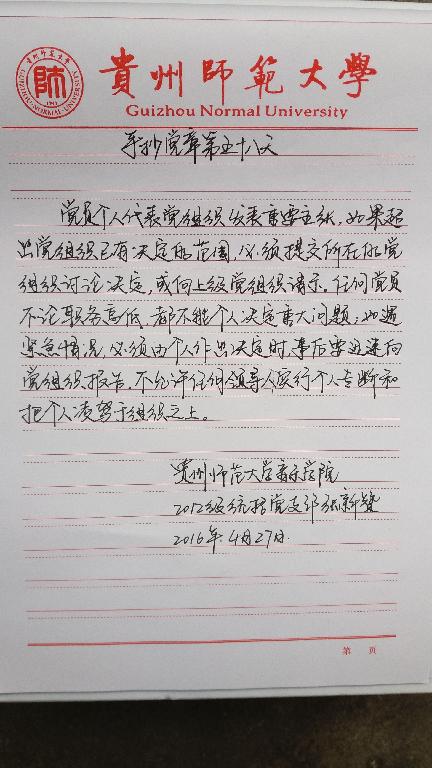 貴州師範大學
Guizhou Normal University
手抄党章第五十八天
党员个人代表党组织发表重要主张,如果超
出党组织已有决定的范围,必须提交所在的党
组织讨论决定,或向上级党组织请示。任何党员
不论职务高低,都不能个人决定重大问题;如遇
紧急情况,必须由个人作出决定时,事后要迅速向
党组织报告。不允许任何领导人实行个人专断和
把个人凌驾于组织之上。
贵州师范大学音乐学院
2012级统招党支部张新赞
2016年4月27日
第 页